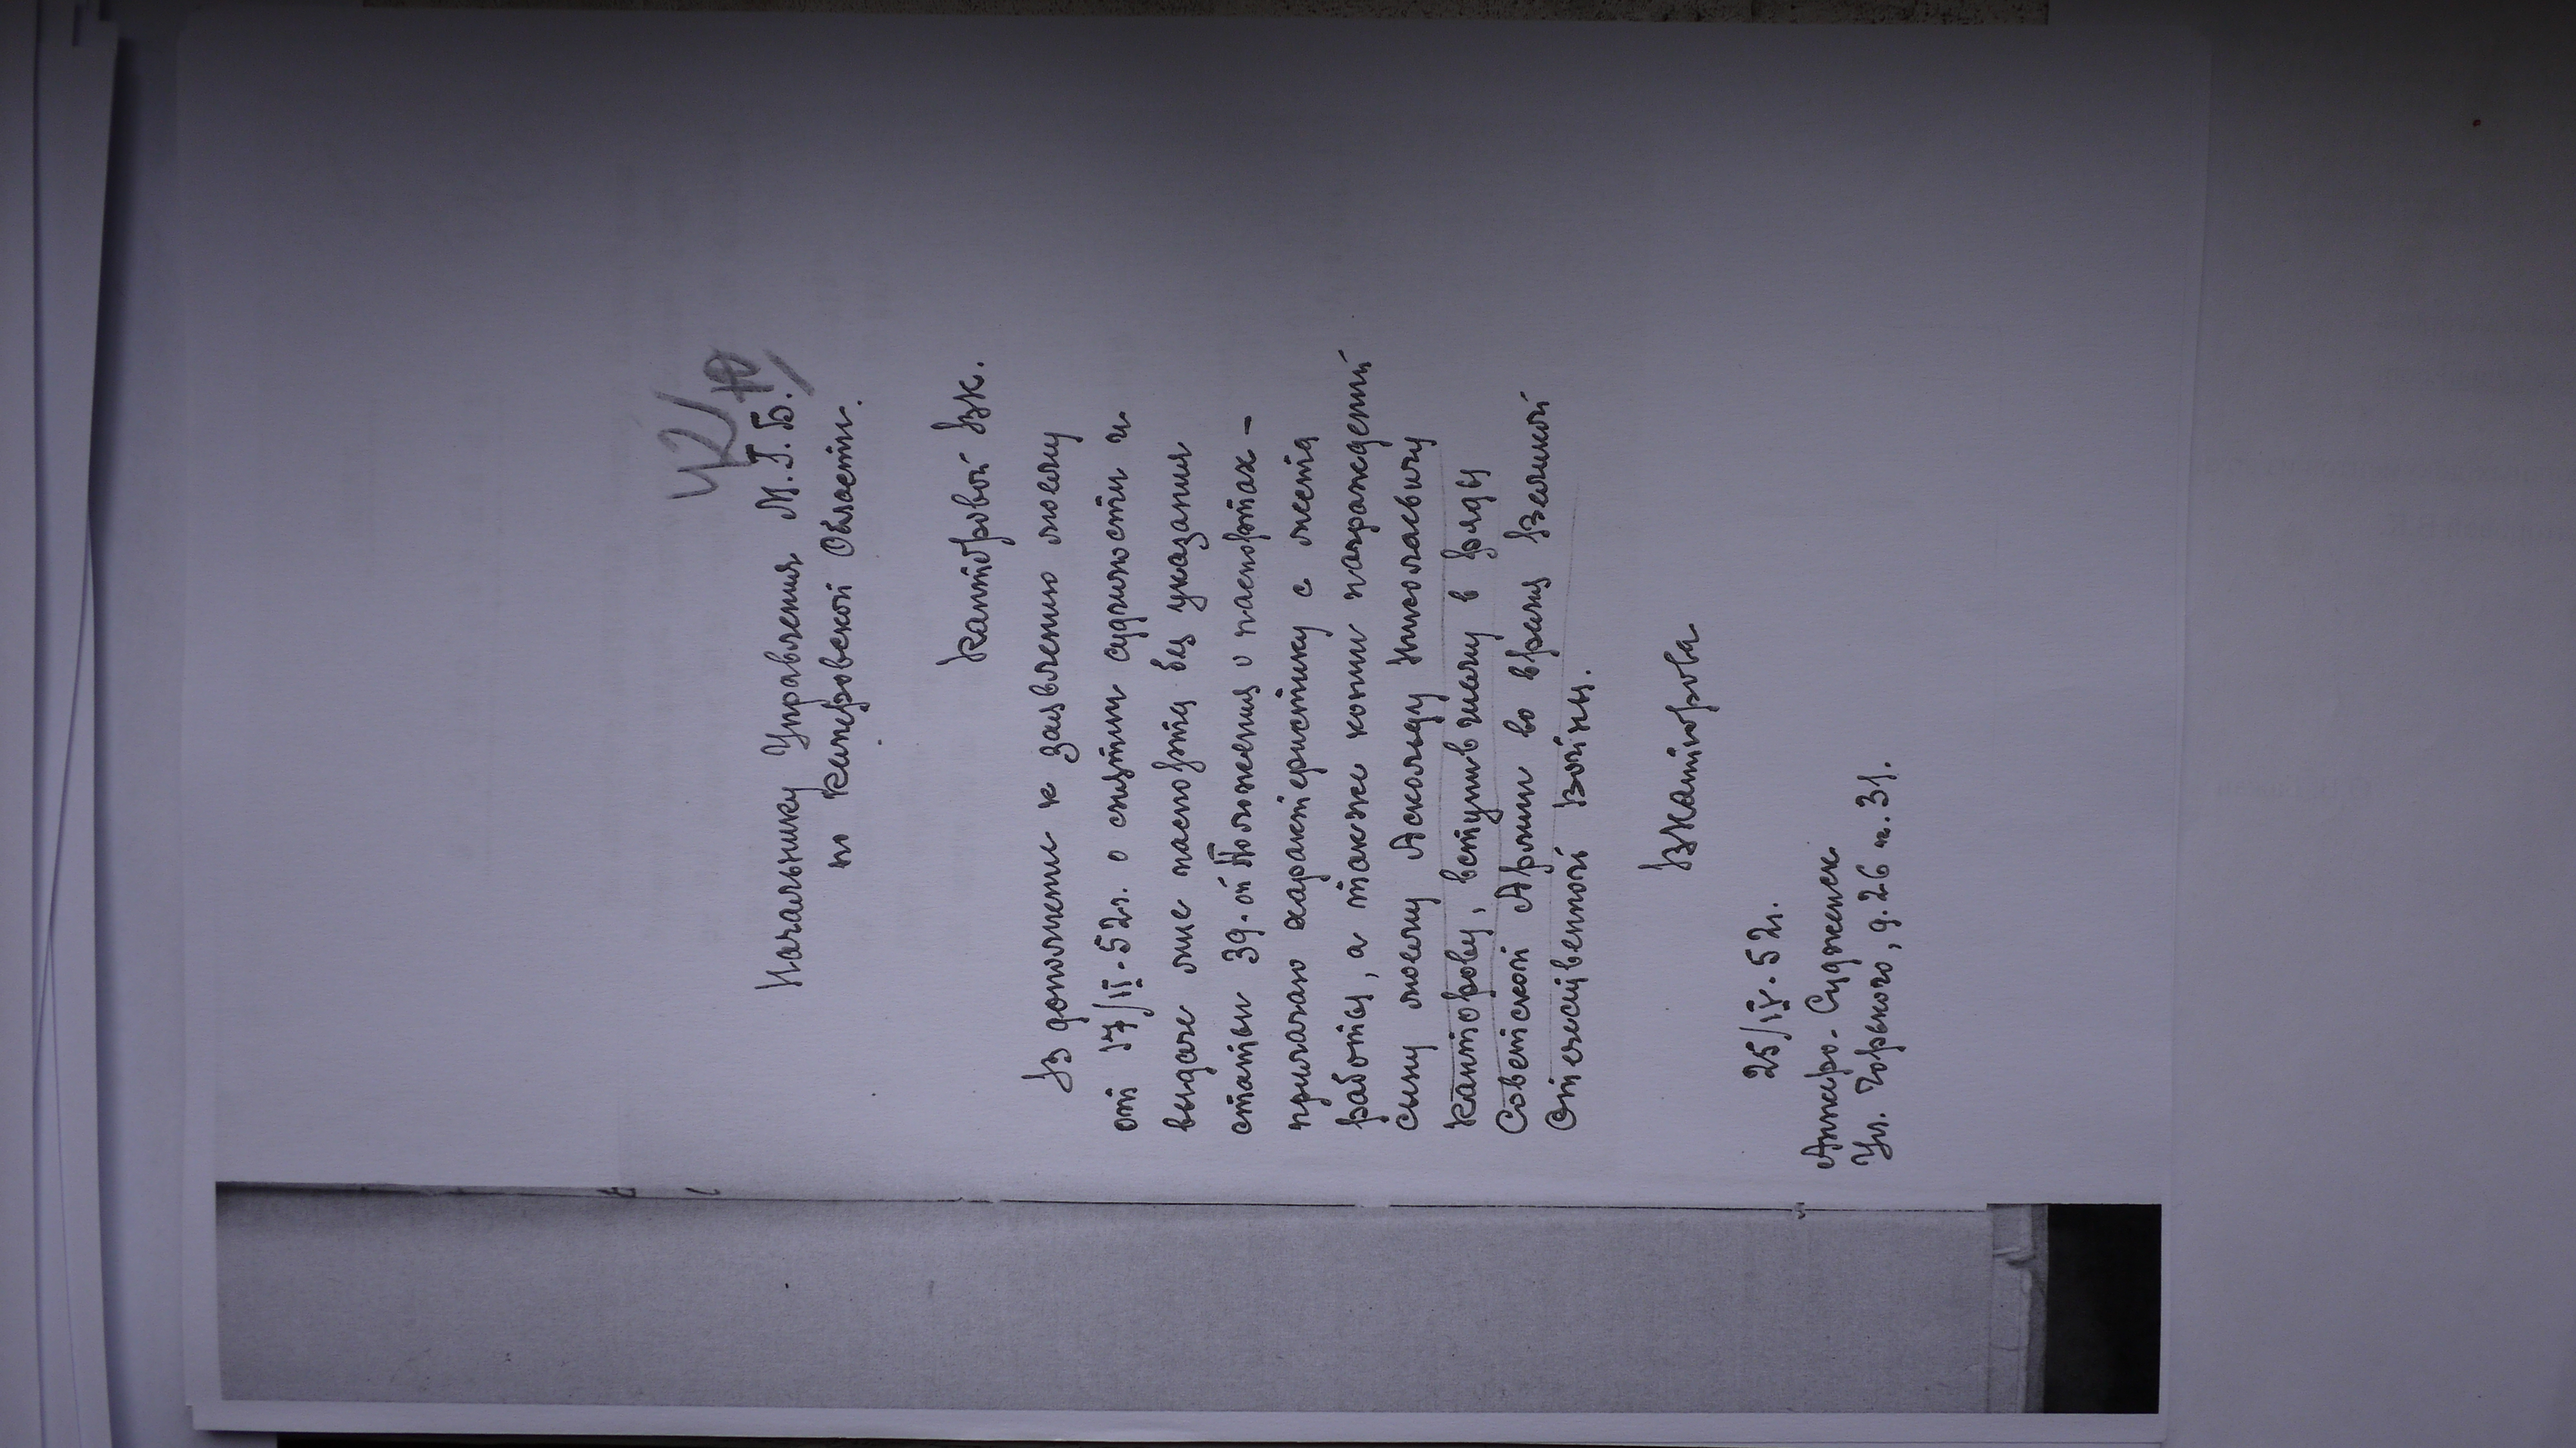 42
Начальнику Управления М.Г.Б.
по Кемеровской Области.
Канторовой В.К.
В дополнение к заявлению моему
от 17/II-52г. о снятии судимости и
выдаче мне паспорта без указания
статьи 39-ой Положения о паспортах -
прилагаю характеристику с места
работы, а также копии награждений
сыну моему Аскольду Николаевичу
Канторову, вступившему в ряды
Советской Армии во время Великой
Отечественной Войны.
ВКанторова
25/IV-52г.
Анжеро-Судженск
Ул. Горького, д. 26 к. 31.